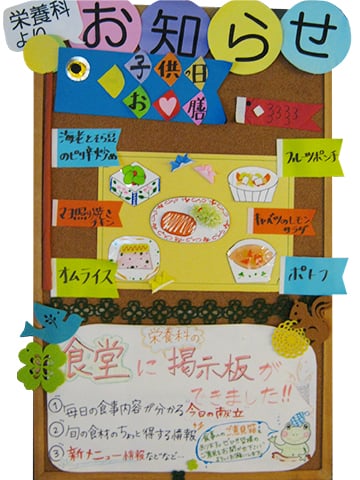 栄養科
より
お知らせ
子供の日
お♡膳
海老とそら豆
のピリ辛炒め
フルーツポンチ
マヨ照り焼き
チキン
キャベツのレモン
サラダ
オムライス
ポトフ
栄養科の
食堂に掲示板が
できました!!
①毎日の食事内容が分かる今日の献立
②旬の食材のちょっと得する情報
③新メニュー情報などなど…